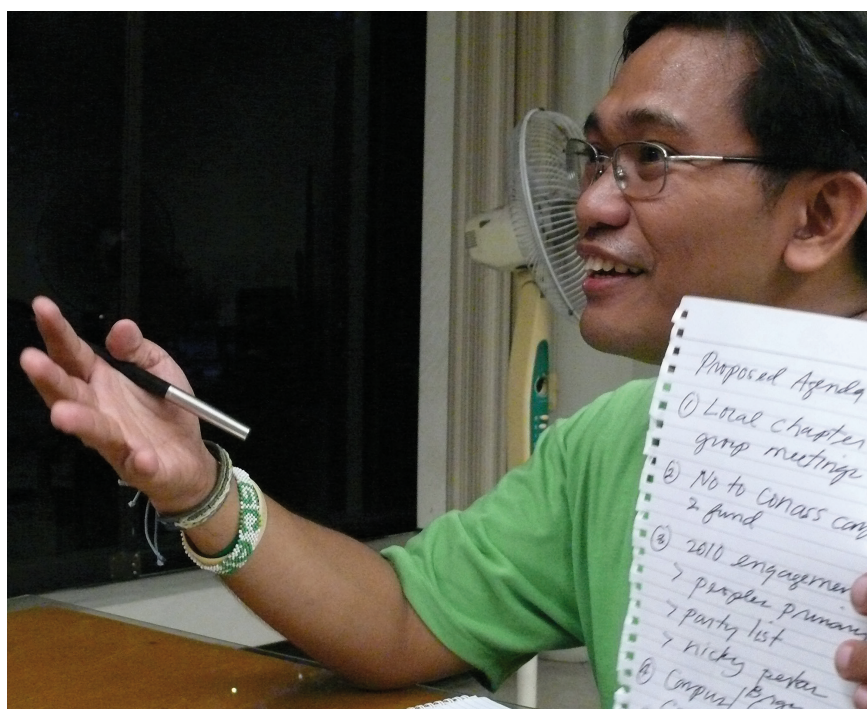 Proposed Agenda
① Local chapter
group meetings
② No to conass
& fund
③ 2010 engagemen
> peoples
> party list
> nicky
④ Campus/